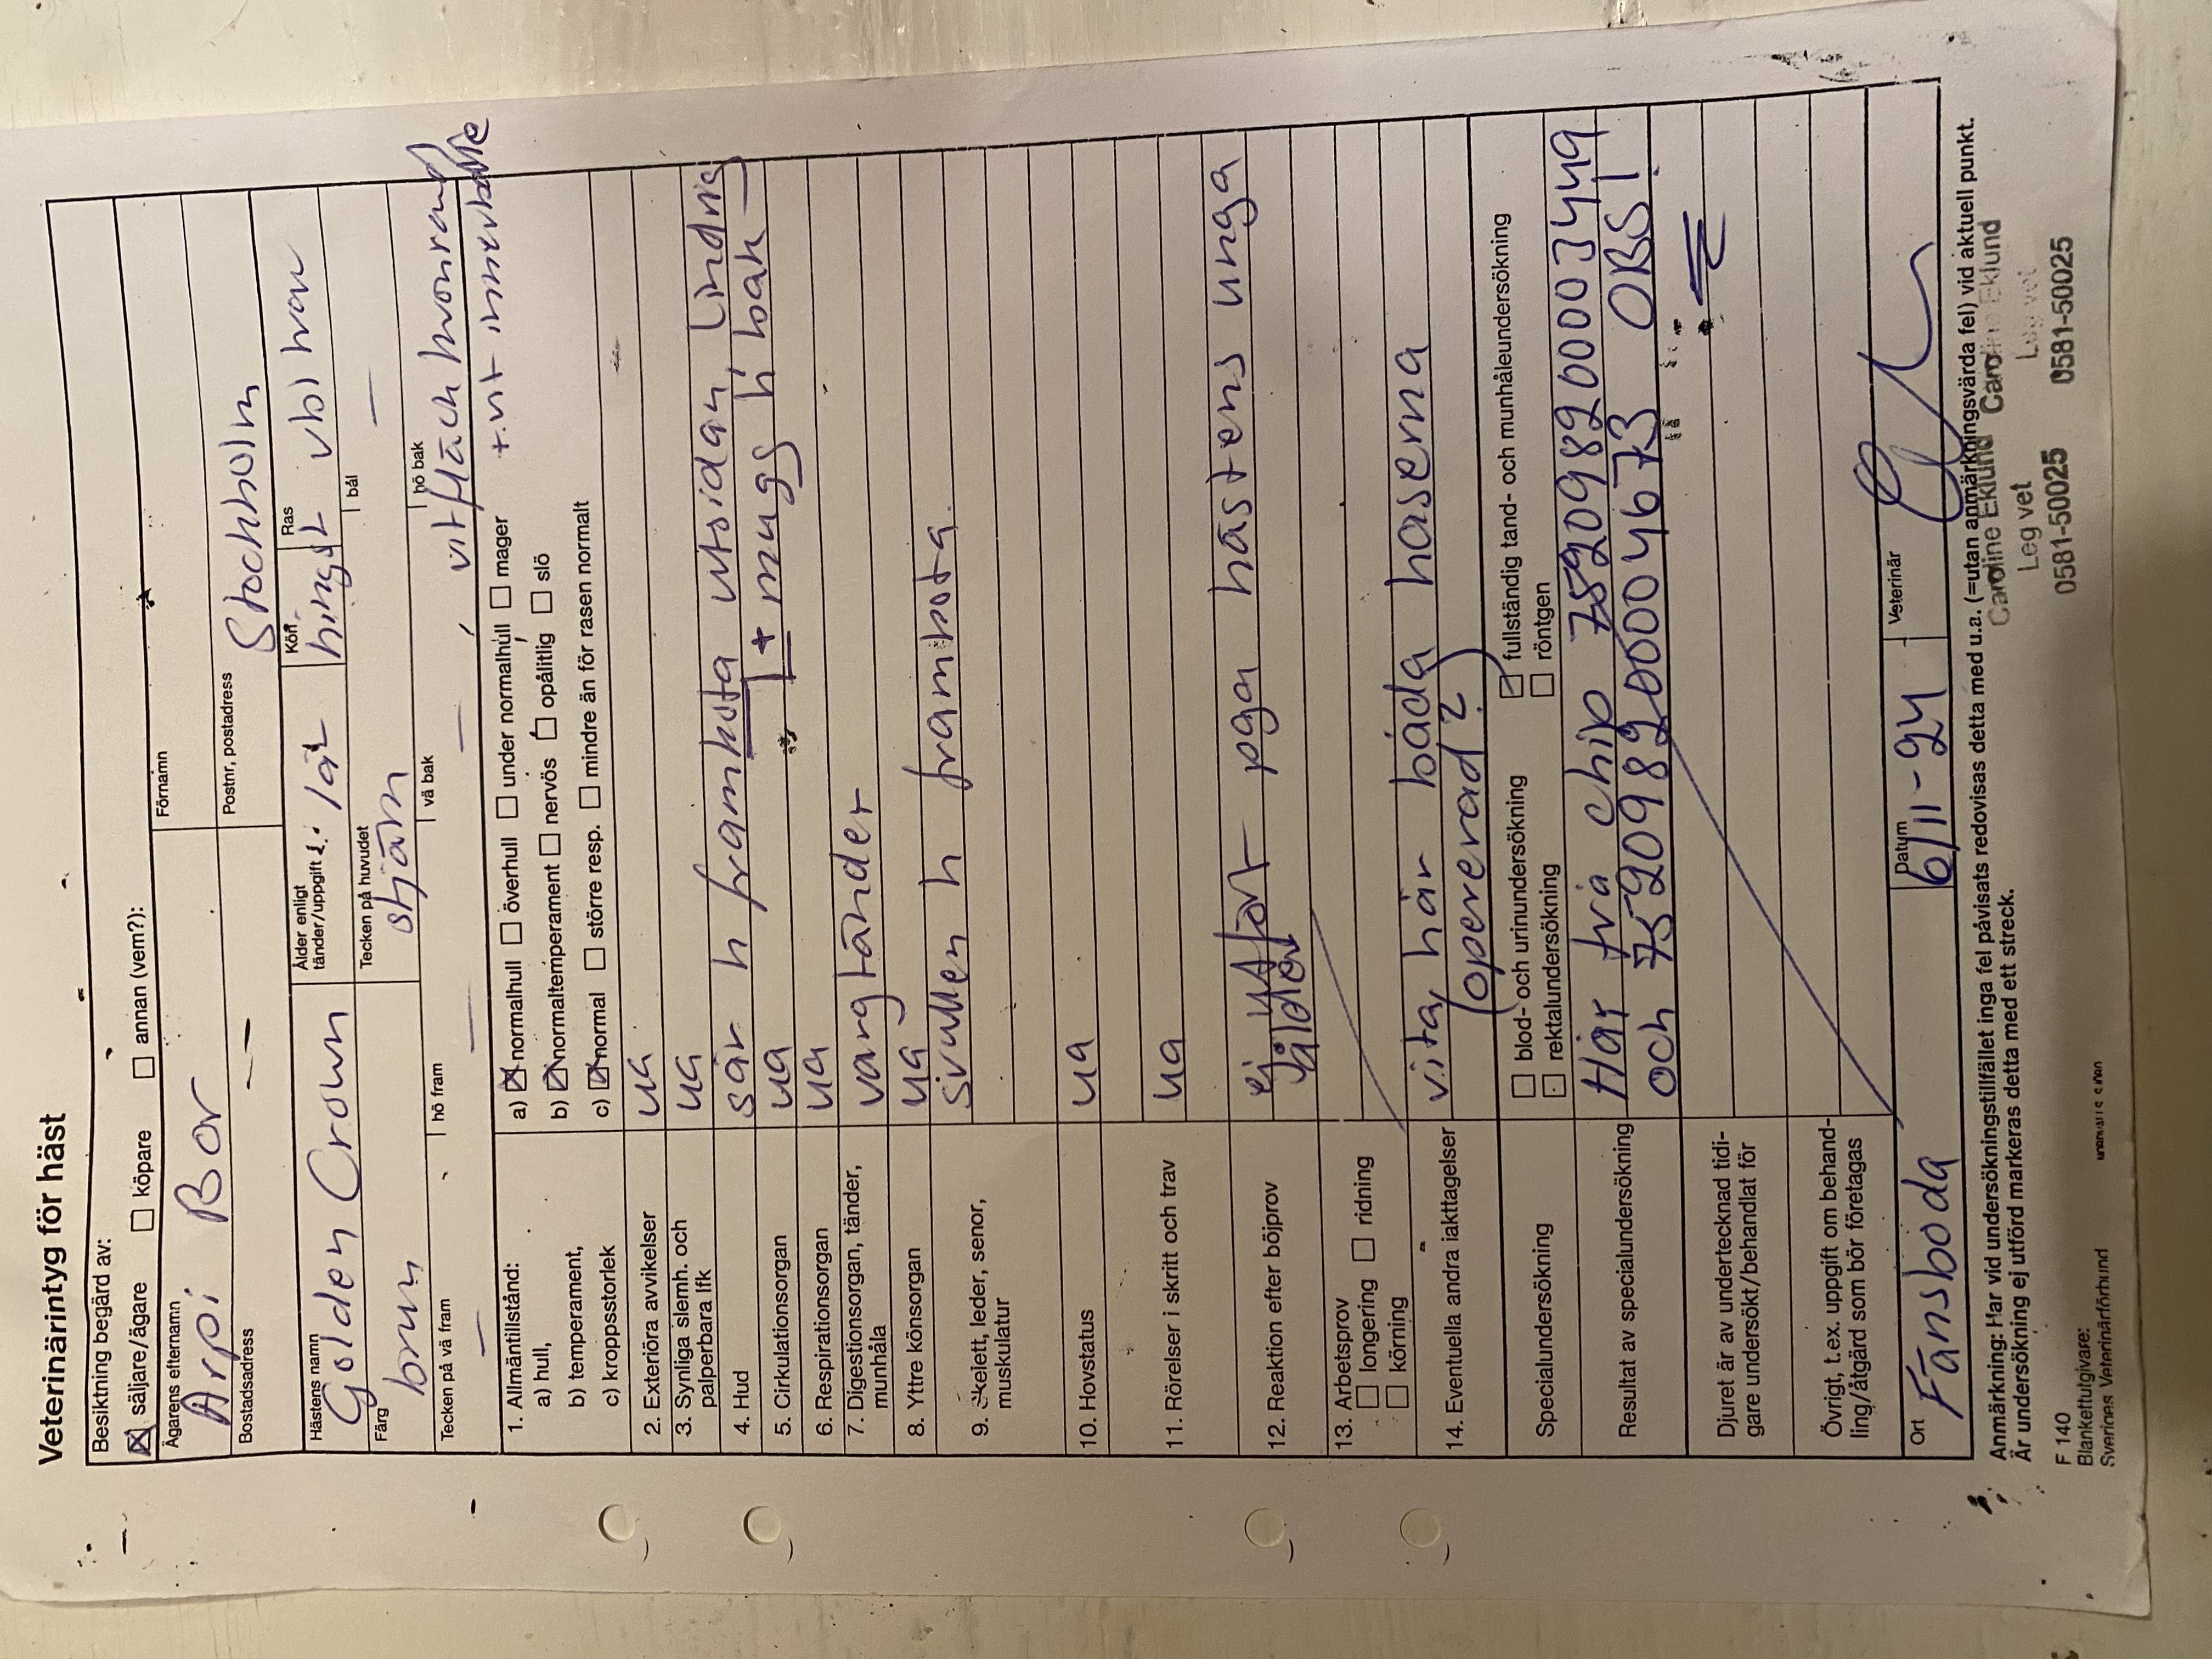 Veterinärintyg för häst
Besiktning begärd av:
☒ säljare/ägare ☐ köpare ☐ annan (vem?):
Ägarens efternamn Förnamn
Arpi Bor
Bostadsadress Postnr, postadress
— Stockholm
Hästens namn Ålder enligt tänder/uppgift Kön Ras
Golden Crown 1år hingst vbl trav
Färg Tecken på huvudet bål
brun stjärn —
Tecken på vä fram hö fram vä bak hö bak
— — — vit fläck kronrand
+ vit innerballe
1. Allmäntillstånd:
a) hull, a) ☒ normalhull ☐ överhull ☐ under normalhull ☐ mager
b) temperament, b) ☒ normaltemperament ☐ nervös ☐ opålitlig ☐ slö
c) kroppsstorlek c) ☒ normal ☐ större resp. ☐ mindre än för rasen normalt
2. Exteriöra avvikelser ua
3. Synliga slemh. och palperbara lfk ua
4. Hud sår h framkota utsidan, lindrig
+ mugg h bak
5. Cirkulationsorgan ua
6. Respirationsorgan ua
7. Digestionsorgan, tänder, munhåla vargtänder
8. Yttre könsorgan ua
9. Skelett, leder, senor, muskulatur svullen h framkota
10. Hovstatus ua
11. Rörelser i skritt och trav ua
12. Reaktion efter böjprov ej utfört pga hästens unga
ålder
13. Arbetsprov
☐ longering ☐ ridning
☐ körning
14. Eventuella andra iakttagelser vita hår båda haserna
(opererad?)
Specialundersökning ☐ blod- och urinundersökning ☑ fullständig tand- och munhåleundersökning
☐ rektalundersökning ☐ röntgen
Resultat av specialundersökning Har två chip 752098200003449
och 752098200004673 OBS!
Djuret är av undertecknad tidigare undersökt/behandlat för
Övrigt, t.ex. uppgift om behandling/åtgärd som bör företagas
Ort Datum Veterinär
Fänsboda 6/11-24
Anmärkning: Har vid undersökningstillfället inga fel påvisats redovisas detta med u.a. (=utan anmärkningsvärda fel) vid aktuell punkt.
Är undersökning ej utförd markeras detta med ett streck.
Caroline Eklund Caroline Eklund
Leg vet Leg vet
0581-50025 0581-50025
F 140
Blankettutgivare:
Sveriges Veterinärförbund